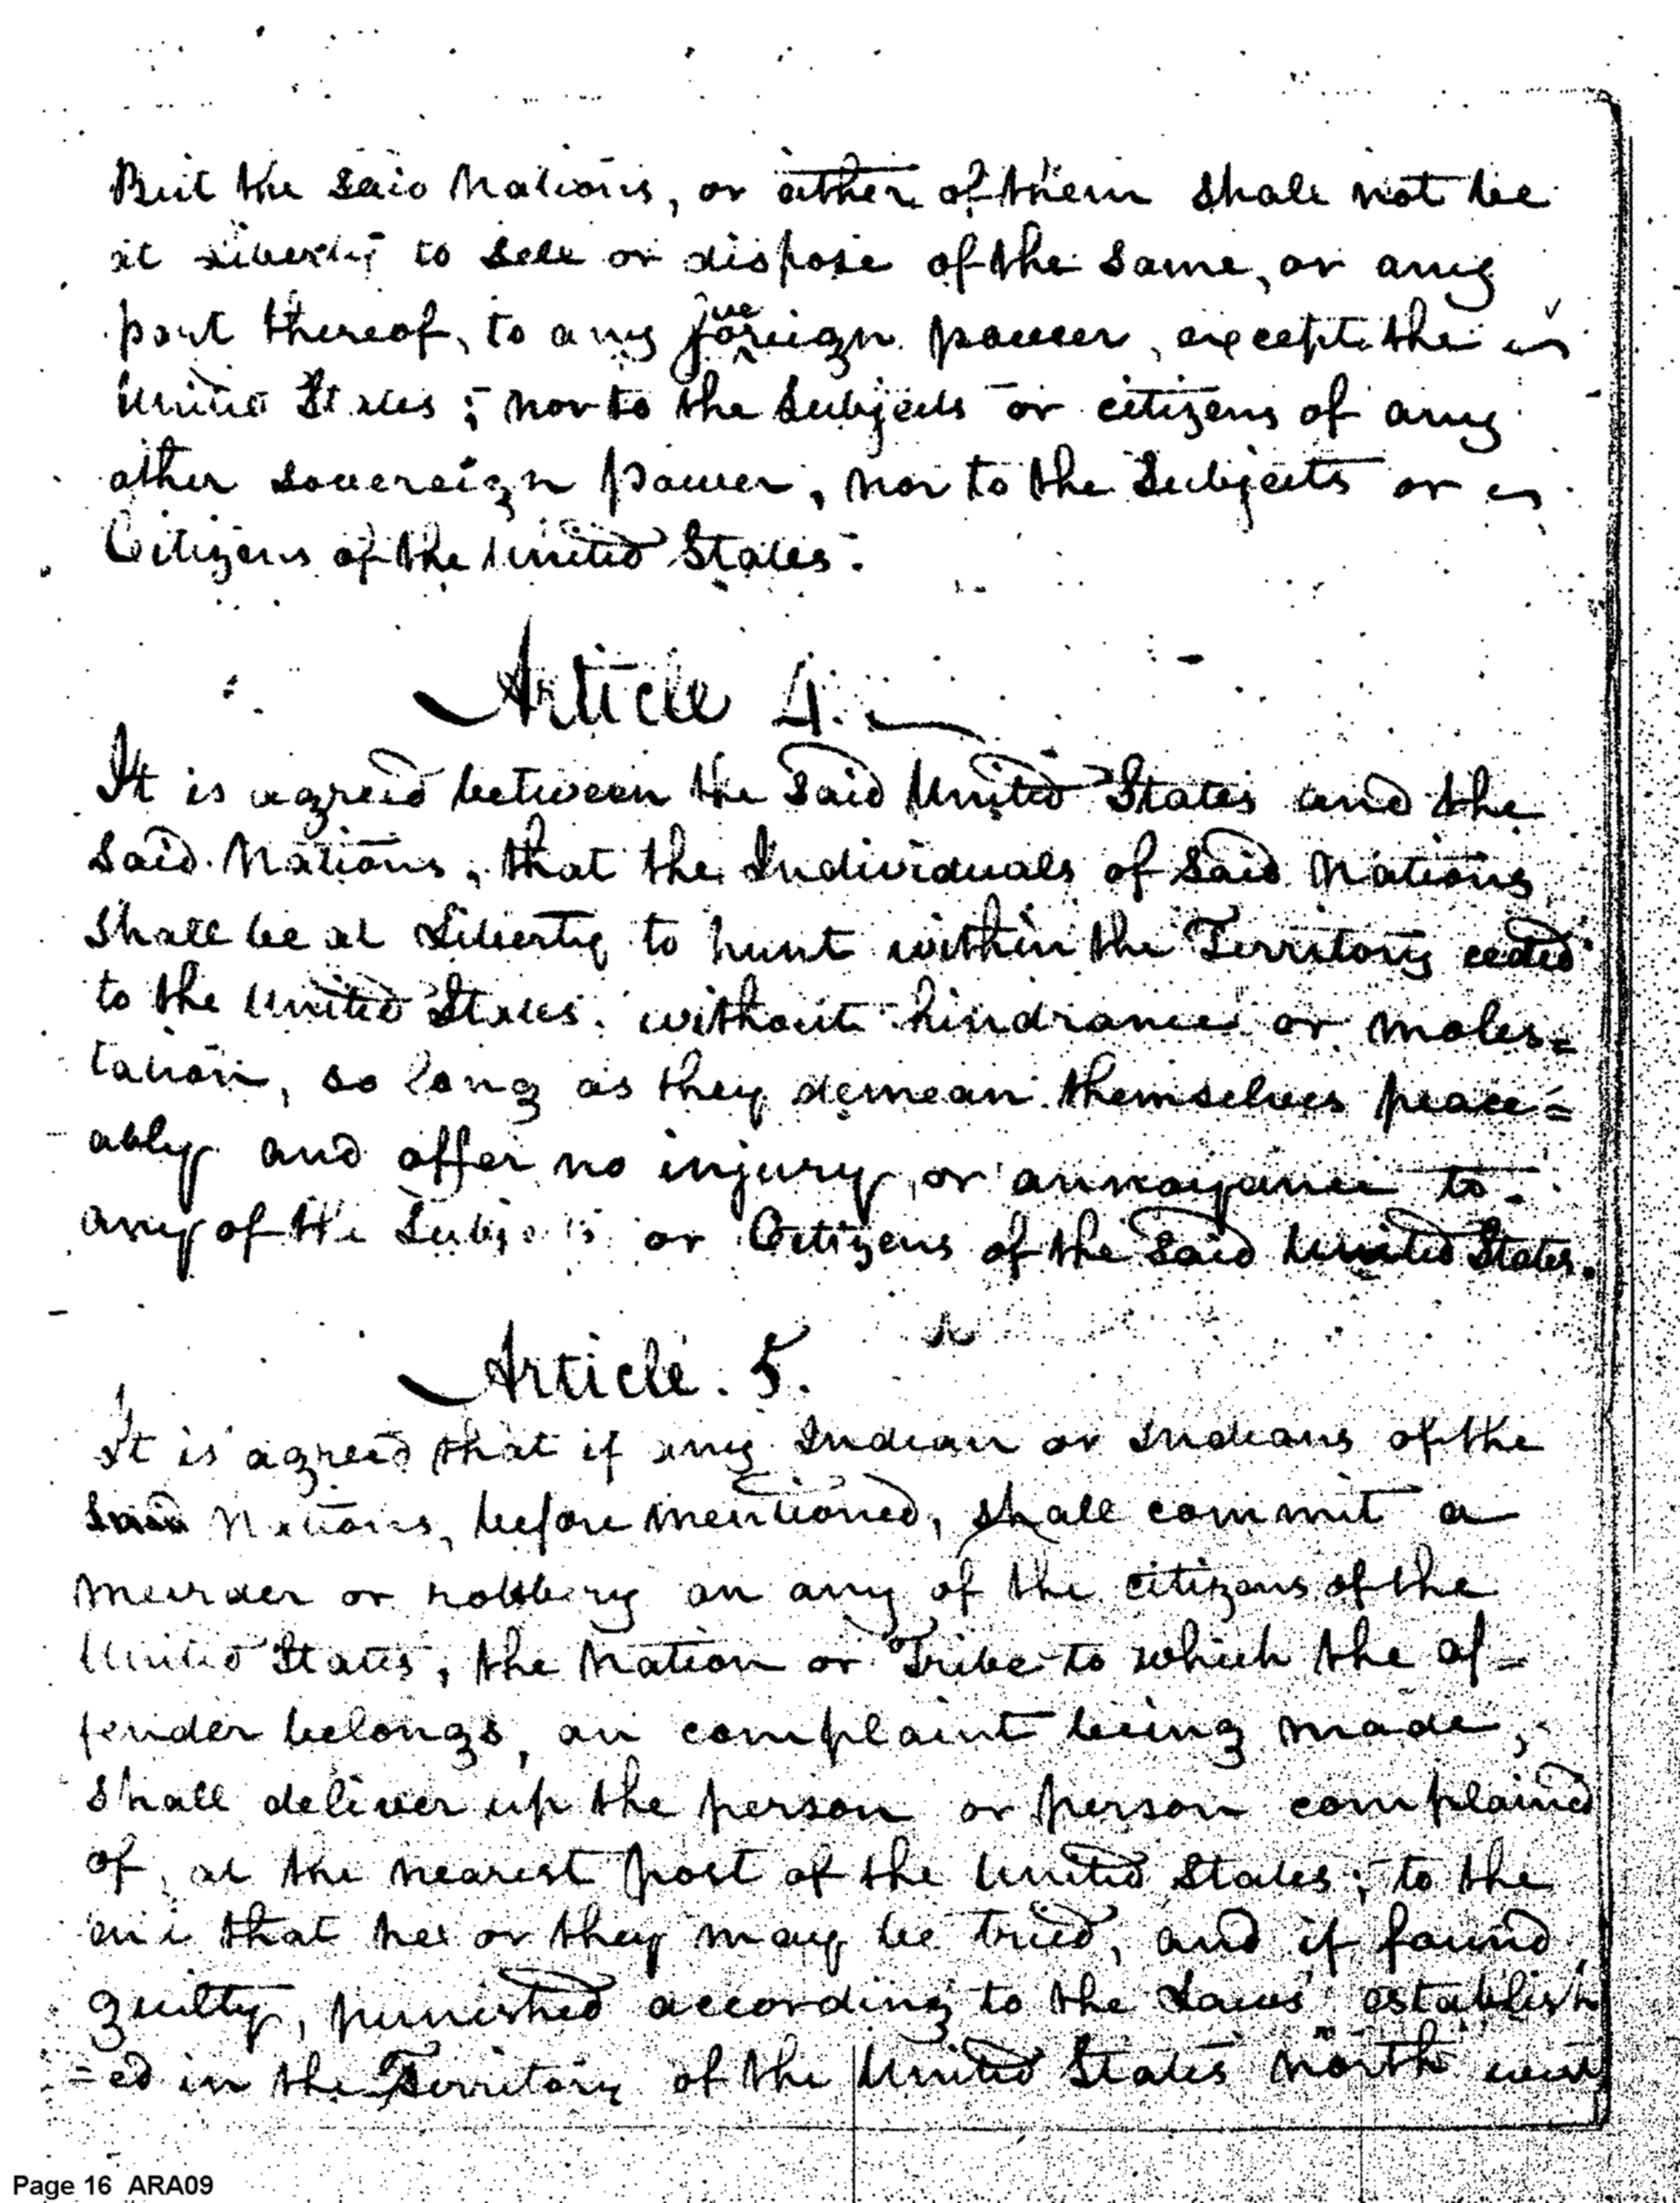 But the said Nations, or either of them shall not be
at Liberty to sell or dispose of the same, or any
part thereof, to any foreign power, except the
United States; nor to the Subjects or citizens of any
other sovereign power, nor to the Subjects or
Citizens of the United States.
Article 4.
It is agreed between the said United States and the
said Nations, that the Individuals of said Nations
shall be at Liberty to hunt within the Territory ceded
to the United States, without hindrance or moles=
tation, so long as they demean themselves peace=
ably and offer no injury, or annoyance to
any of the Subjects or Citizens of the said United States.
Article. 5.
It is agreed that if any Indian or Indians of the
said Nations, before mentioned, shall commit a
murder or robbery on any of the citizens of the
United States, the Nation or Tribe to which the of-
fender belongs, on complaint being made,
shall deliver up the person or person complained
of, at the nearest post of the United States; to the
end that he or they may be tried, and if found
guilty, punished according to the Laws establish
=ed in the Territory of the United States north west
Page 16 ARA09